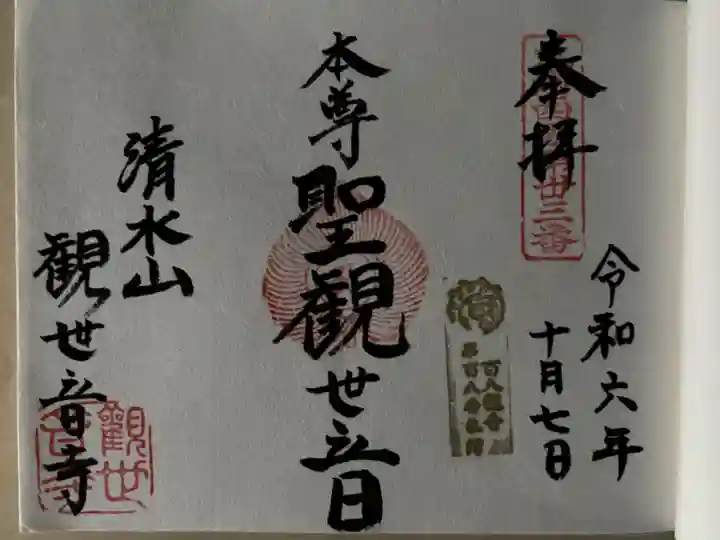 奉拝
令和六年
十月七日
本尊
聖観世音
清水山
観世音寺
觀世
音寺